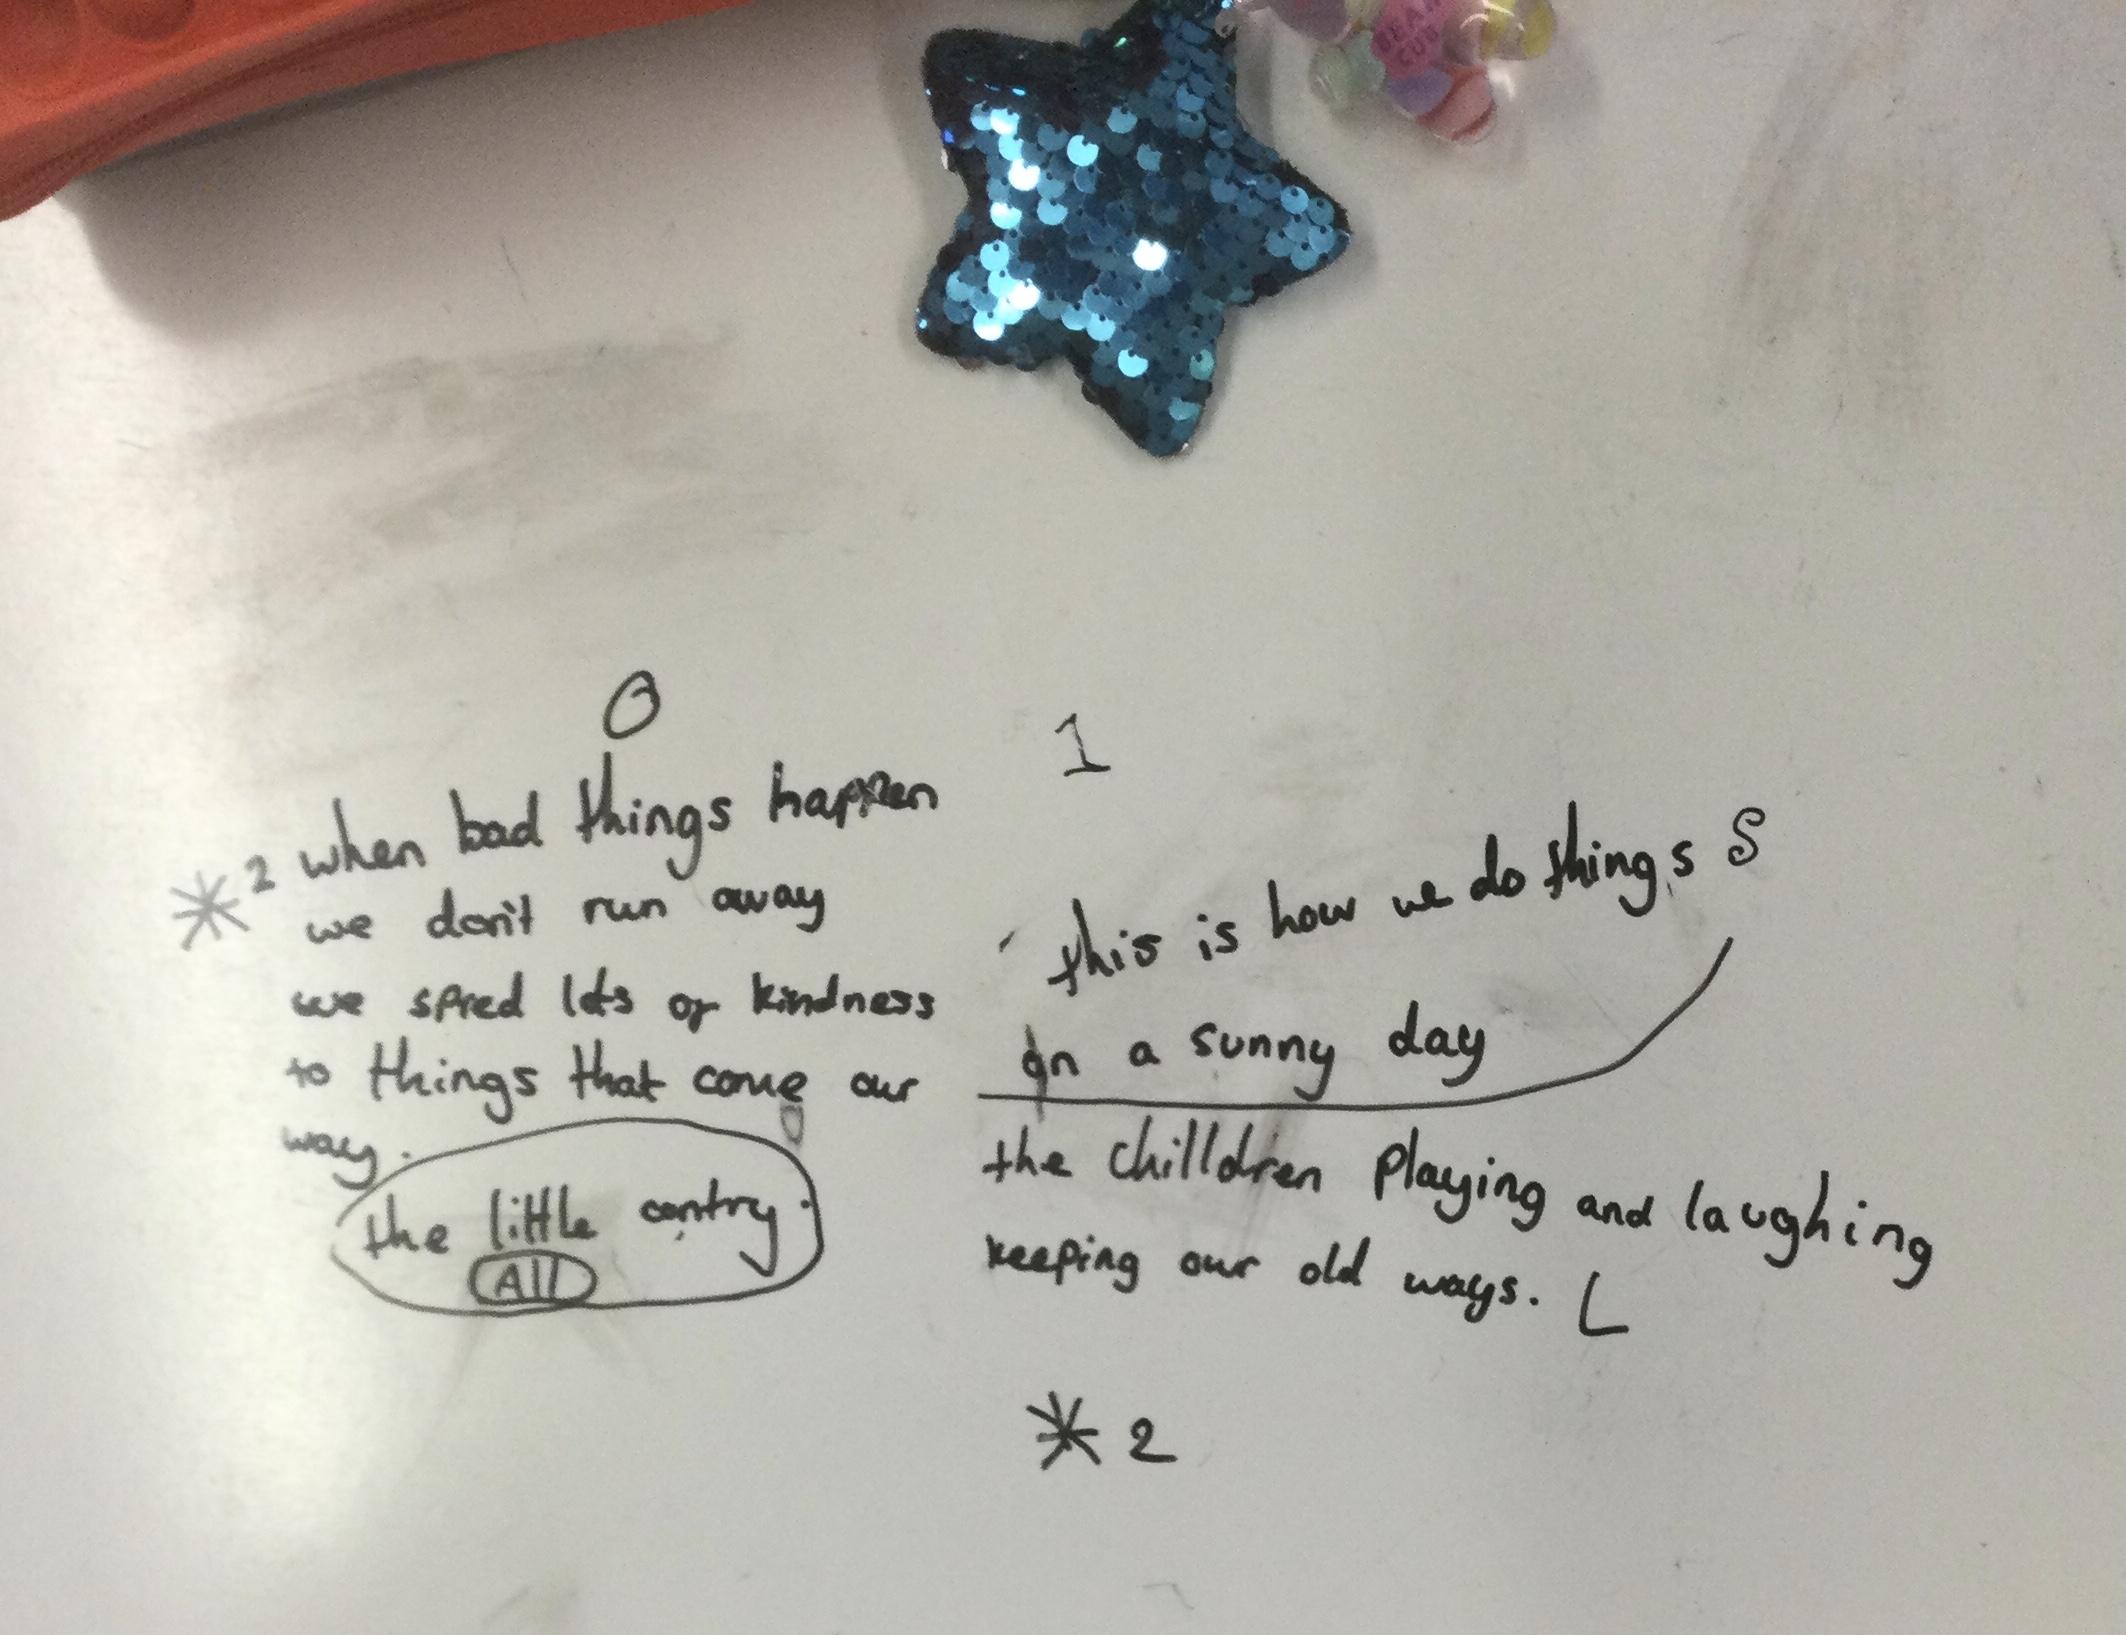 BEAR
CUB
O
* 2 when bad things happen
we don't run away
we spred lots of kindness
to things that come our
way.
the little contry.
All
1
this is how we do things S
on a sunny day
the chilldren playing and laughing
keeping our old ways. L
* 2